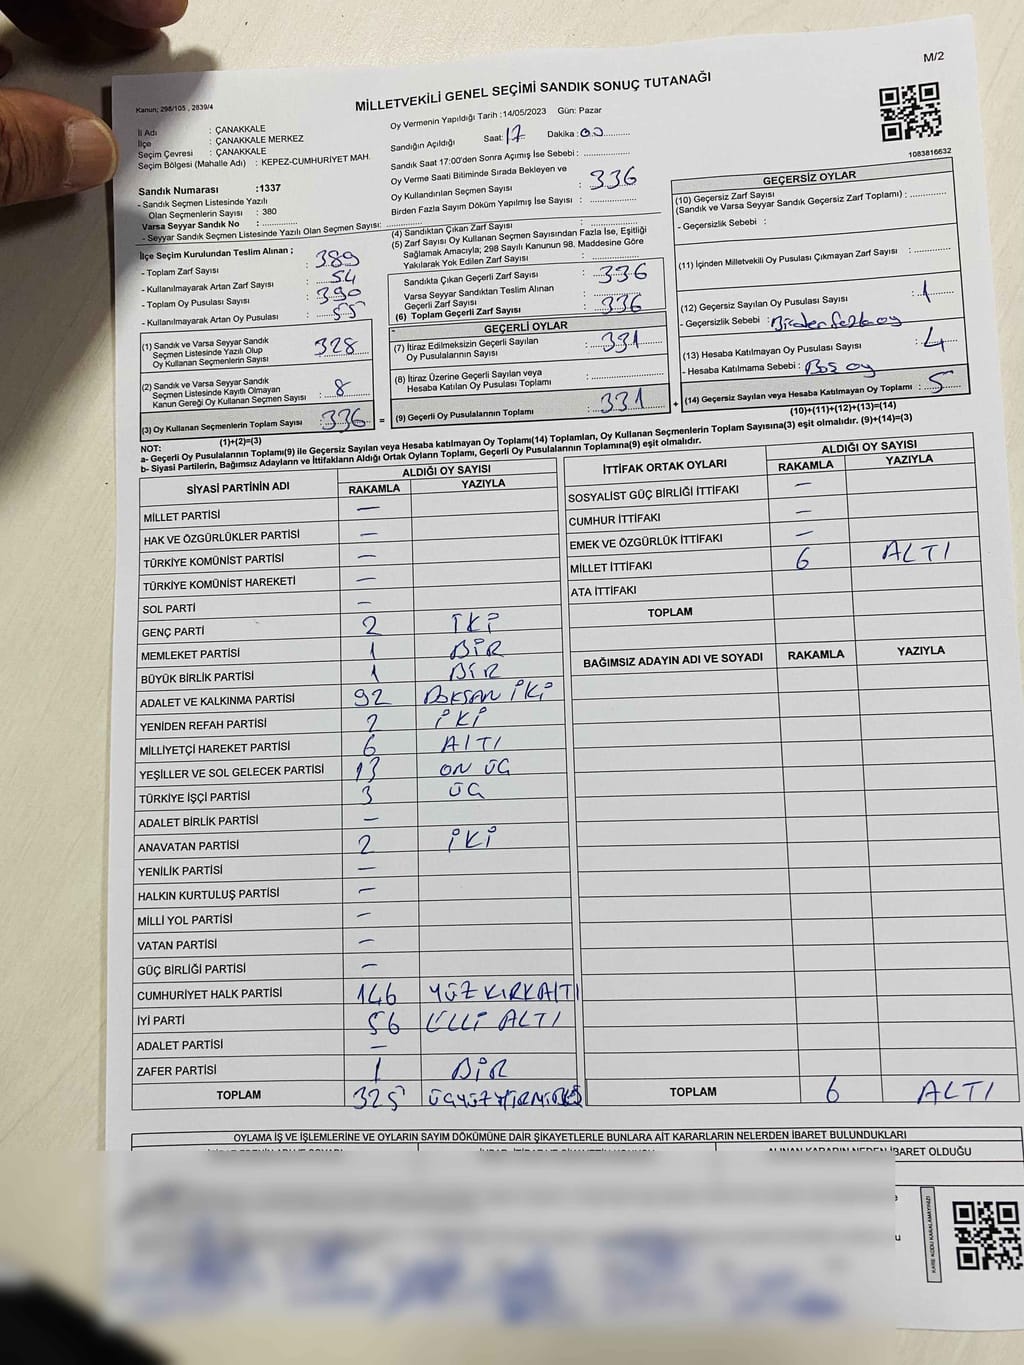 M/2
Kanun; 298/105 , 2839/4
MİLLETVEKİLİ GENEL SEÇİMİ SANDIK SONUÇ TUTANAĞI
1083816632
İl Adı : ÇANAKKALE
İlçe : ÇANAKKALE MERKEZ
Seçim Çevresi : ÇANAKKALE
Seçim Bölgesi (Mahalle Adı) : KEPEZ-CUMHURİYET MAH.
Sandık Numarası :1337
- Sandık Seçmen Listesinde Yazılı
Olan Seçmenlerin Sayısı : 380
Varsa Seyyar Sandık No :
- Seyyar Sandık Seçmen Listesinde Yazılı Olan Seçmen Sayısı:
Oy Vermenin Yapıldığı Tarih :14/05/2023 Gün: Pazar
Sandığın Açıldığı Saat: 17 Dakika : 00
Sandık Saat 17:00'den Sonra Açımış İse Sebebi :
Oy Verme Saati Bitiminde Sırada Bekleyen ve
Oy Kullandırılan Seçmen Sayısı : 336
Birden Fazla Sayım Döküm Yapılmış İse Sayısı :
İlçe Seçim Kurulundan Teslim Alınan ;
- Toplam Zarf Sayısı : 389
- Kullanılmayarak Artan Zarf Sayısı : 54
- Toplam Oy Pusulası Sayısı : 390
- Kullanılmayarak Artan Oy Pusulası : 55
(1) Sandık ve Varsa Seyyar Sandık
Seçmen Listesinde Yazılı Olup
Oy Kullanan Seçmenlerin Sayısı : 328
(2) Sandık ve Varsa Seyyar Sandık
Seçmen Listesinde Kayıtlı Olmayan
Kanun Gereği Oy Kullanan Seçmen Sayısı : 8
(3) Oy Kullanan Seçmenlerin Toplam Sayısı : 336
(1)+(2)=(3)
(4) Sandıktan Çıkan Zarf Sayısı :
(5) Zarf Sayısı Oy Kullanan Seçmen Sayısından Fazla İse, Eşitliği
Sağlamak Amacıyla; 298 Sayılı Kanunun 98. Maddesine Göre
Yakılarak Yok Edilen Zarf Sayısı :
Sandıkta Çıkan Geçerli Zarf Sayısı : 336
Varsa Seyyar Sandıktan Teslim Alınan
Geçerli Zarf Sayısı :
(6) Toplam Geçerli Zarf Sayısı : 336
GEÇERLİ OYLAR
(7) İtiraz Edilmeksizin Geçerli Sayılan
Oy Pusulalarının Sayısı : 331
(8) İtiraz Üzerine Geçerli Sayılan veya
Hesaba Katılan Oy Pusulası Toplamı :
= (9) Geçerli Oy Pusulalarının Toplamı : 331 +
GEÇERSİZ OYLAR
(10) Geçersiz Zarf Sayısı
(Sandık ve Varsa Seyyar Sandık Geçersiz Zarf Toplamı) :
- Geçersizlik Sebebi :
(11) İçinden Milletvekili Oy Pusulası Çıkmayan Zarf Sayısı :
(12) Geçersiz Sayılan Oy Pusulası Sayısı : 1
- Geçersizlik Sebebi : Birden fazla oy
(13) Hesaba Katılmayan Oy Pusulası Sayısı : 4
- Hesaba Katılmama Sebebi : Boş oy
(14) Geçersiz Sayılan veya Hesaba Katılmayan Oy Toplamı : 5
(10)+(11)+(12)+(13)=(14)
NOT:
a- Geçerli Oy Pusulalarının Toplamı(9) ile Geçersiz Sayılan veya Hesaba katılmayan Oy Toplamı(14) Toplamları, Oy Kullanan Seçmenlerin Toplam Sayısına(3) eşit olmalıdır. (9)+(14)=(3)
b- Siyasi Partilerin, Bağımsız Adayların ve İttifakların Aldığı Ortak Oyların Toplamı, Geçerli Oy Pusulalarının Toplamına(9) eşit olmalıdır.
SİYASİ PARTİNİN ADI ALDIĞI OY SAYISI
RAKAMLA YAZIYLA
MİLLET PARTİSİ —
HAK VE ÖZGÜRLÜKLER PARTİSİ —
TÜRKİYE KOMÜNİST PARTİSİ —
TÜRKİYE KOMÜNİST HAREKETİ —
SOL PARTİ —
GENÇ PARTİ 2 İKİ
MEMLEKET PARTİSİ 1 BİR
BÜYÜK BİRLİK PARTİSİ 1 BİR
ADALET VE KALKINMA PARTİSİ 92 DOKSAN İKİ
YENİDEN REFAH PARTİSİ 2 İKİ
MİLLİYETÇİ HAREKET PARTİSİ 6 ALTI
YEŞİLLER VE SOL GELECEK PARTİSİ 13 ON ÜÇ
TÜRKİYE İŞÇİ PARTİSİ 3 ÜÇ
ADALET BİRLİK PARTİSİ —
ANAVATAN PARTİSİ 2 İKİ
YENİLİK PARTİSİ —
HALKIN KURTULUŞ PARTİSİ —
MİLLİ YOL PARTİSİ —
VATAN PARTİSİ —
GÜÇ BİRLİĞİ PARTİSİ —
CUMHURİYET HALK PARTİSİ 146 YÜZ KIRKALTI
İYİ PARTİ 56 ELLİ ALTI
ADALET PARTİSİ —
ZAFER PARTİSİ 1 BİR
TOPLAM 325 ÜÇYÜZ YİRMİBEŞ
İTTİFAK ORTAK OYLARI ALDIĞI OY SAYISI
RAKAMLA YAZIYLA
SOSYALİST GÜÇ BİRLİĞİ İTTİFAKI —
CUMHUR İTTİFAKI —
EMEK VE ÖZGÜRLÜK İTTİFAKI —
MİLLET İTTİFAKI 6 ALTI
ATA İTTİFAKI
TOPLAM
BAĞIMSIZ ADAYIN ADI VE SOYADI RAKAMLA YAZIYLA
TOPLAM 6 ALTI
OYLAMA İŞ VE İŞLEMLERİNE VE OYLARIN SAYIM DÖKÜMÜNE DAİR ŞİKAYETLERLE BUNLARA AİT KARARLARIN NELERDEN İBARET BULUNDUKLARI
ALINAN KARARIN NEDEN İBARET OLDUĞU
KARE KODU KARALAMAYINIZ!